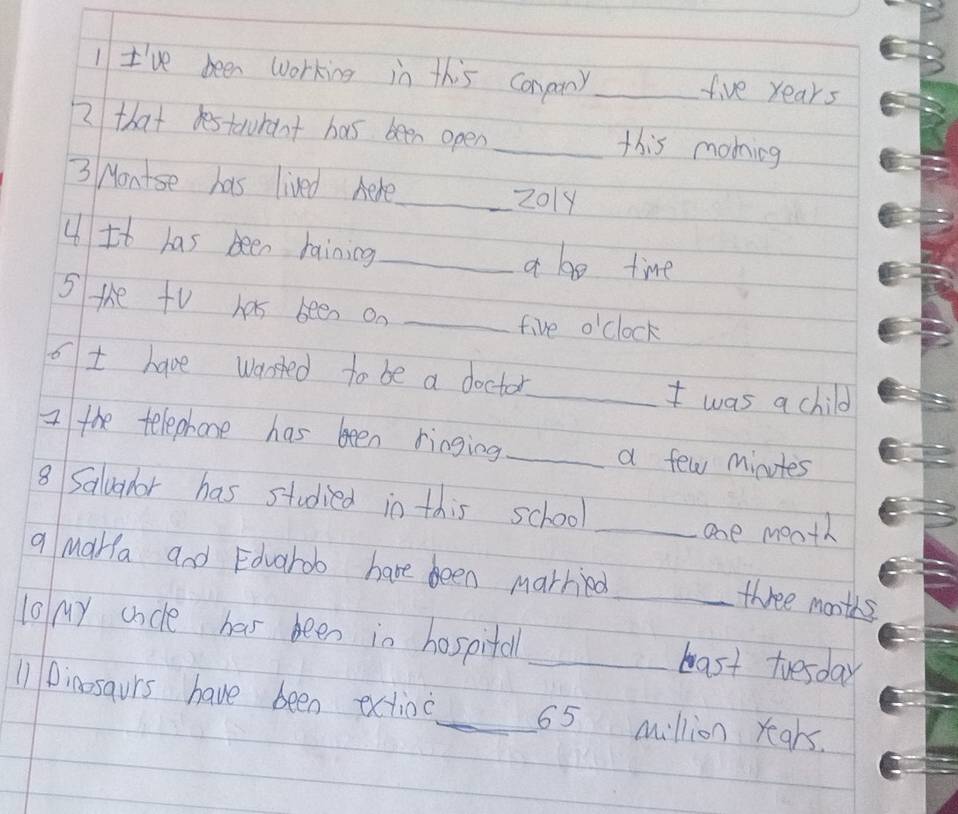 1 I've been working in this company _____ five years
2 that restaurant has been open _____ this morning
3 Montse has lived here _____ 2014
4 It has been raining _____ a time
5 the tv has been on _____ five o'clock
6 I have wanted to be a doctor _____ I was a child
7 the telephone has been ringing _____ a few minutes
8 Salvador has studied in this school _____ one month
9 Marta and Eduardo have been married _____ three months
10 My uncle has been in hospitall _____ last tuesday
11 Dinosaurs have been extinc _____ 65 million years.